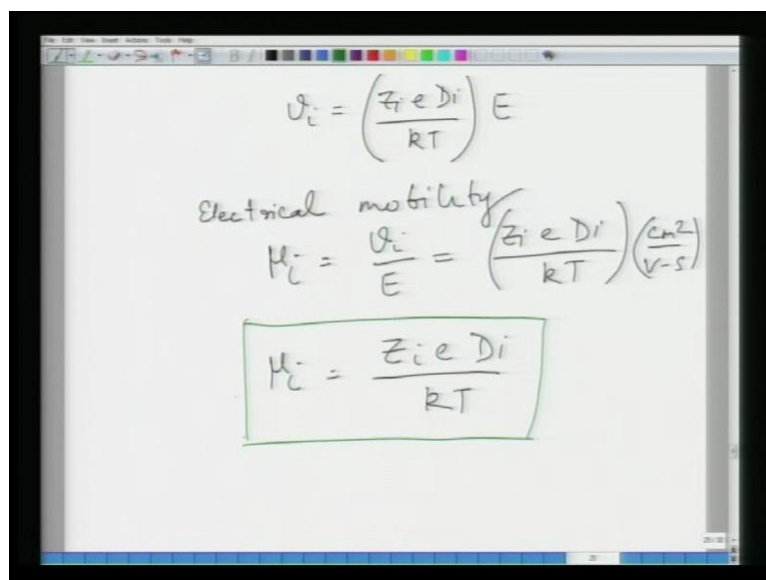 File Edit View Insert Actions Tools Help
B I
ϑi = (Zi e Di / kT) E
Electrical mobility
μi = ϑi / E = (Zi e Di / kT) (cm2 / V-s)
μi = Zi e Di / kT
25